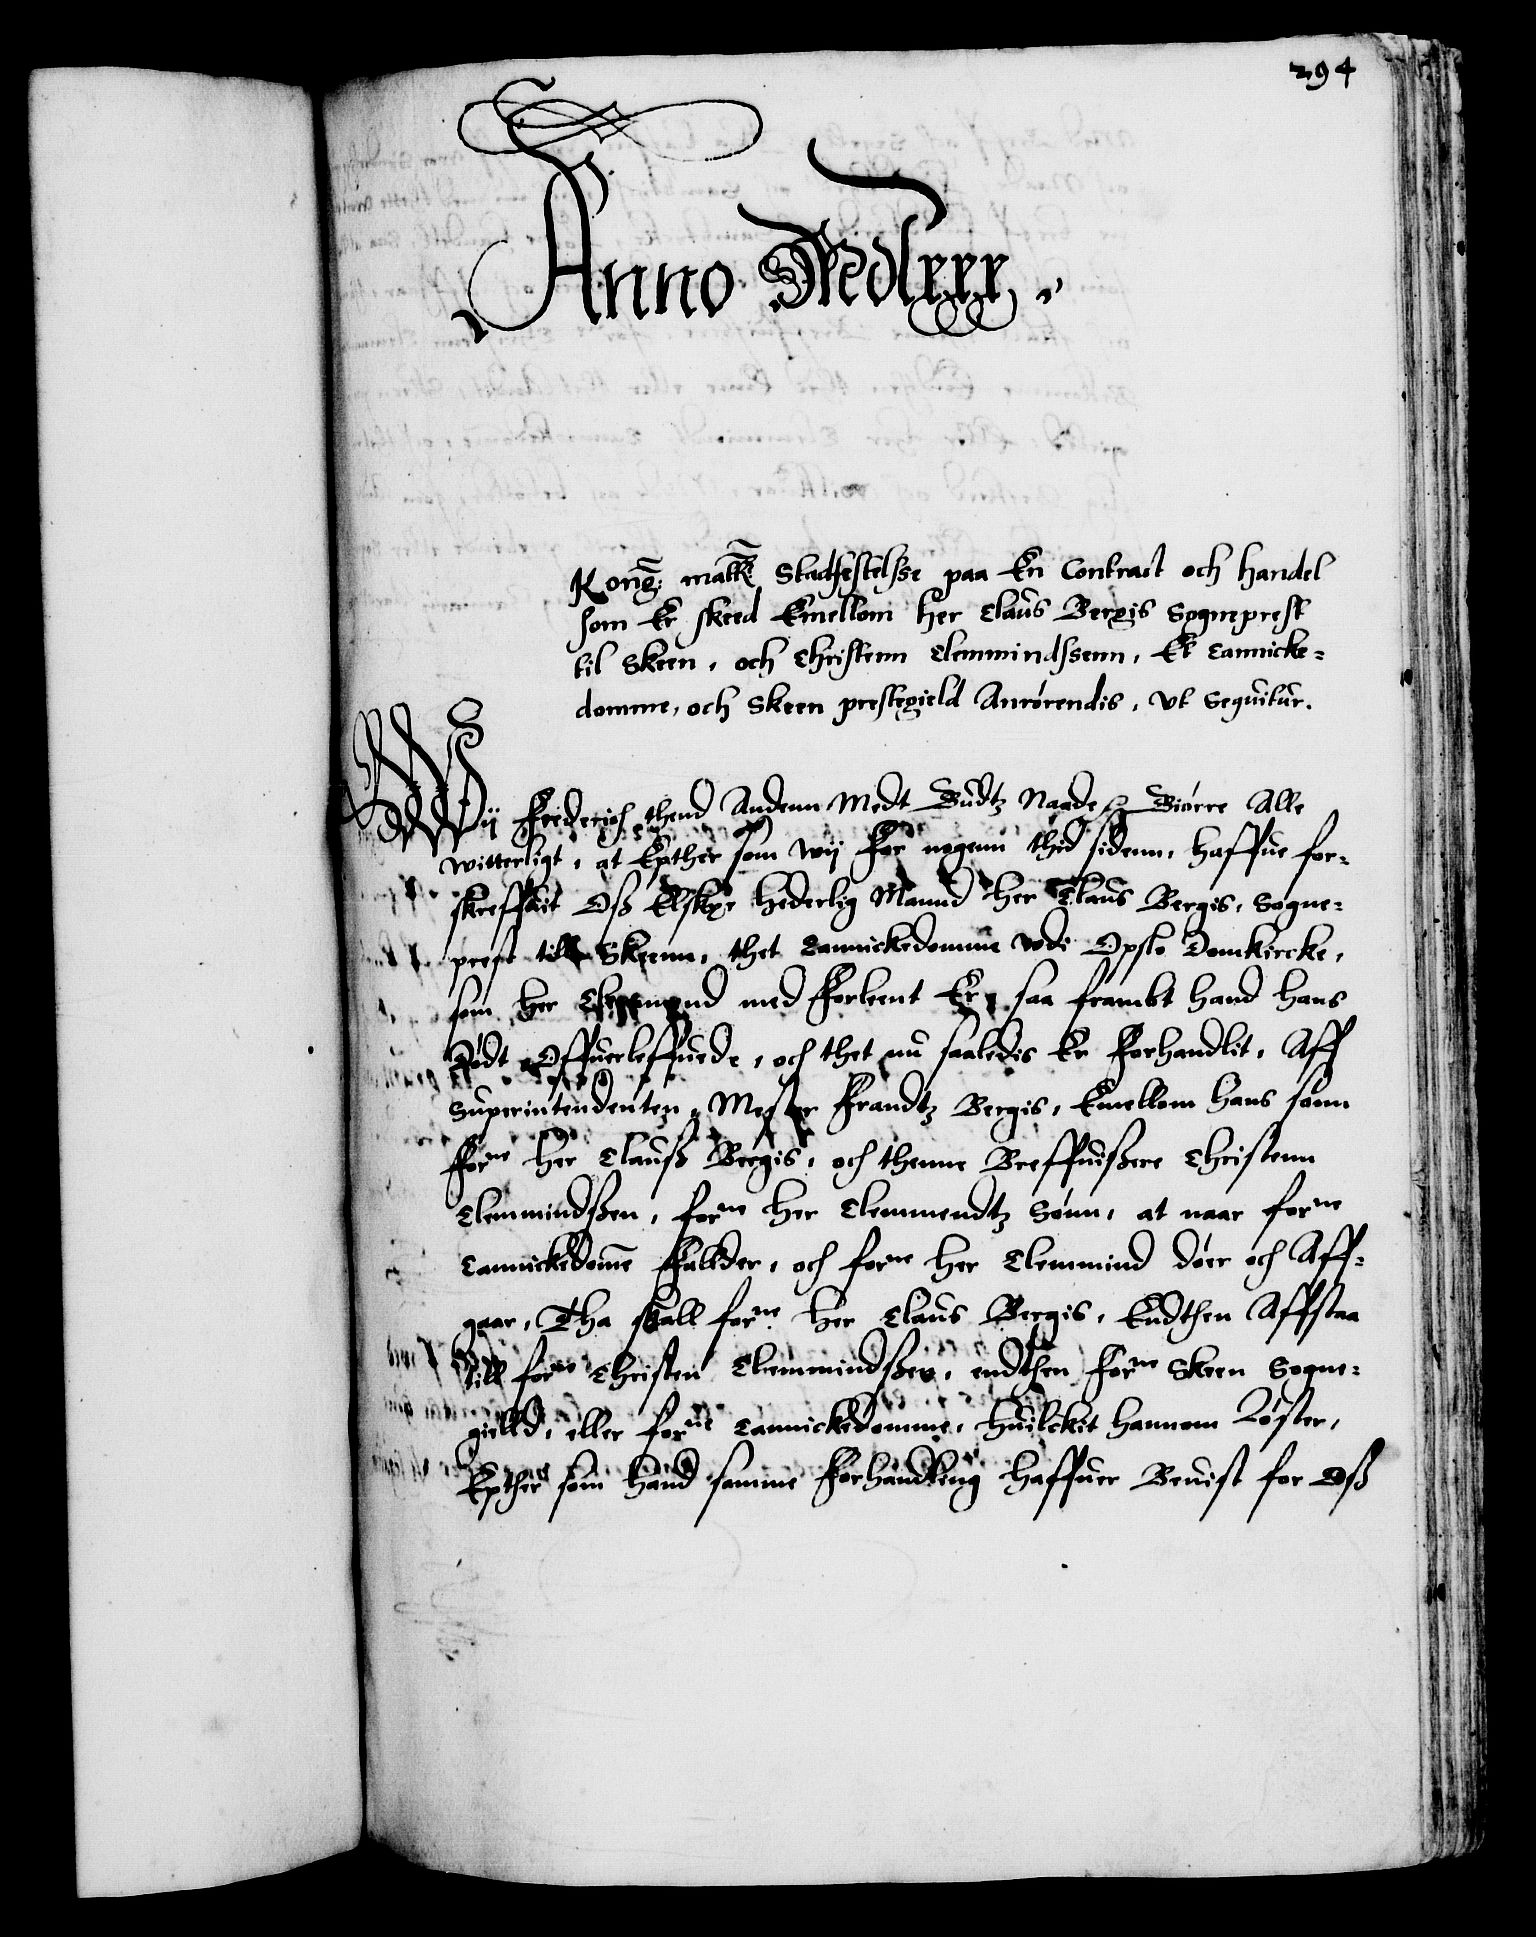 294
Anno Mdlxxx.
Kong: matt: Stadfestelsse paa En Contract och handel
som Er skeed Emellom her Claus Bergis Sogneprest
til Skeen, och Christenn Clemmindssenn, Et Cannicke-
domme, och Skeen prestegield Anrørendis, Vt Sequitur.
Wij Friderich thend Andenn Medt Gudtz Naade Giørre Alle
witterligt, at Epther som wij for nogenn thid sidenn, haffue for-
skreffuit Oß Elskge hederlig Mannd her Claus Bergis, Sogne-
prest till Skeenn, thet Cannickedomme vdi Opslo Domkircke,
som her Clemmend med fforleent Er, saa frambt hand hans
Dødt Offuerleffuede, och thet nu saaledis Er forhandlit, Aff
Superintendenten, Mester Frandtz Bergis, Emellom hans sonn
forne her Clauß Bergis, och thenne Breffuißere Christenn
Clemmindßen, forne her Clemmendtz Sønn, at naar forne
Cannickedome falder, och forne her Clemmind døer och Aff-
gaar, Tha skall forne her Claus Bergis, Endthen Affstaa
till forne Christen Clemmindßen, endthen forne Skeen Sogne-
gielld, eller forne Cannickedomme, huilckit hannom Løster,
Epther som hand samme forhandling haffuer Beuist for Oß